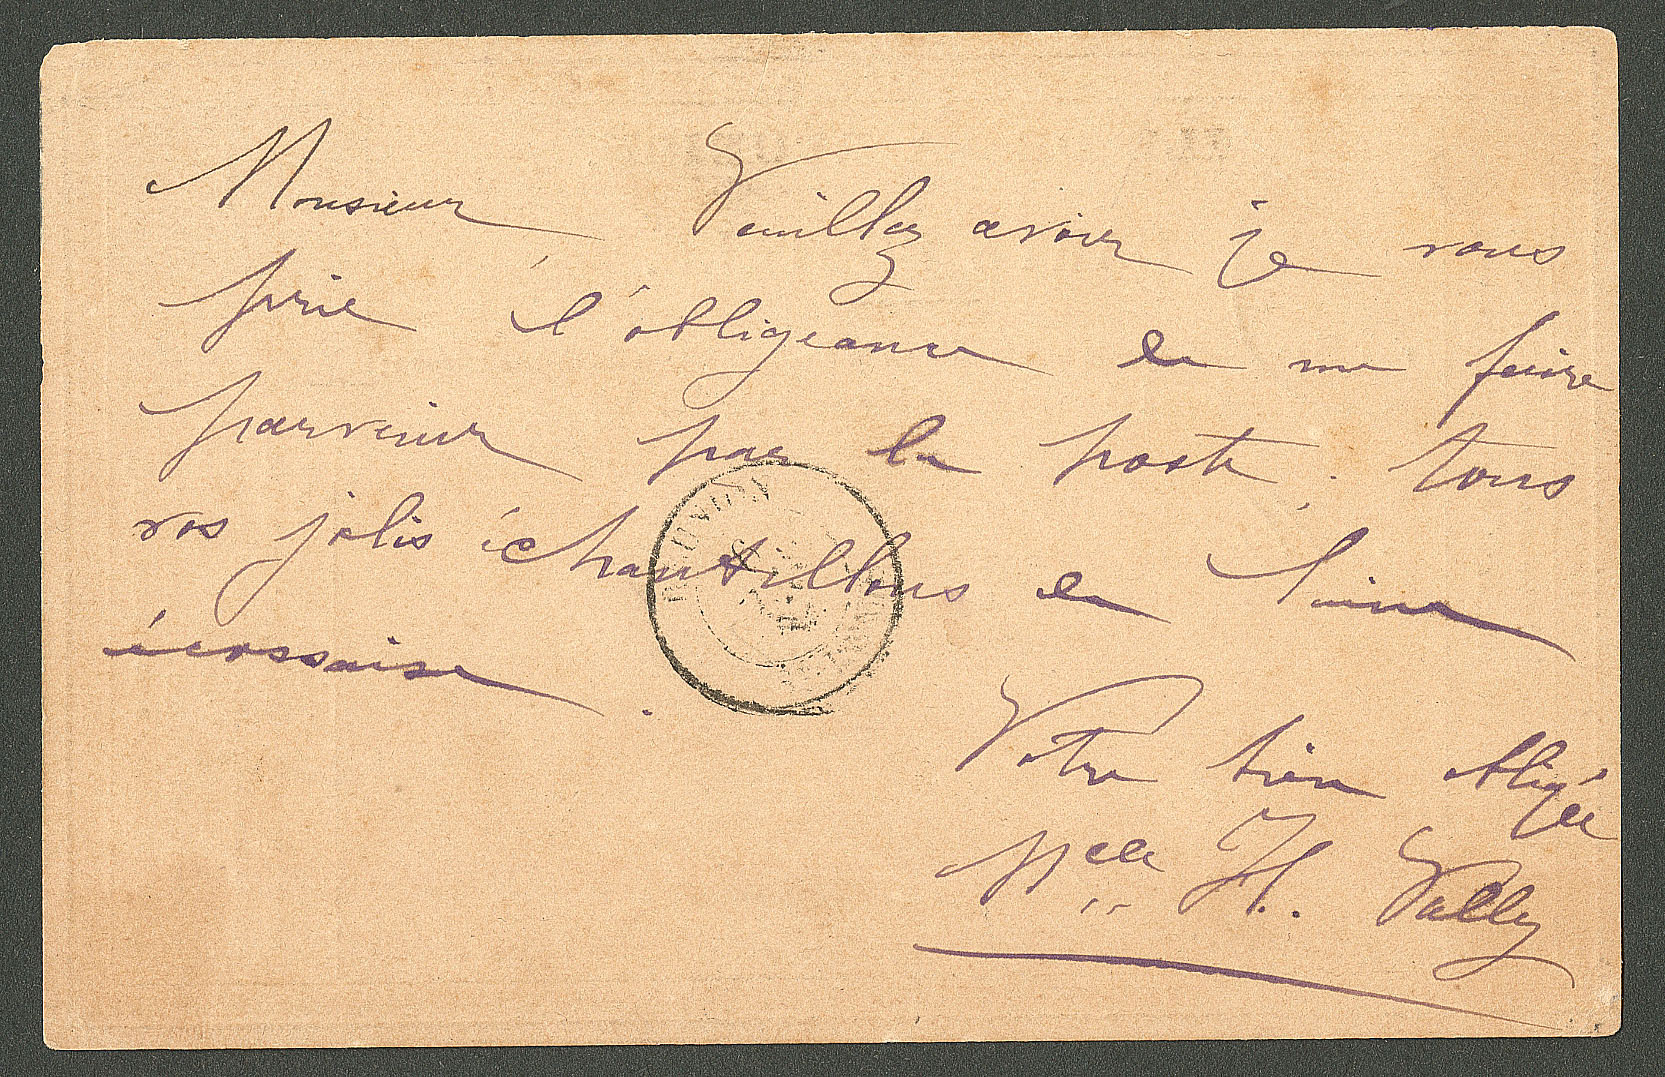 Monsieur Veuillez avoir je vous
prie l'obligeance de me faire
parvenir par la poste, tous
vos jolis échantillons de laine
écossaise.
Votre bien obligée
Melle H. Vally